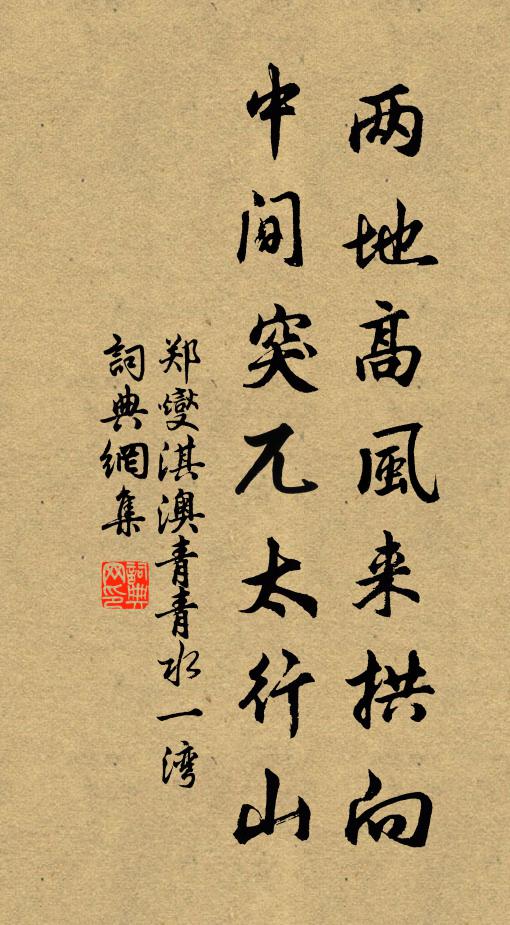 两地高風来拱向
中间突兀太行山
郑燮淇澳青青水一湾
詞典網集
詞典网印